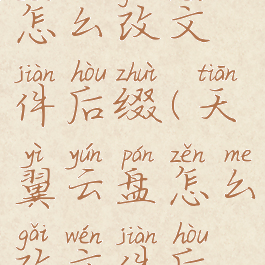 怎么改文
jiàn hòu zhuì tiān
件后缀(天
yì yún pán zěn me
翼云盘怎么
gǎi wén jiàn hòu